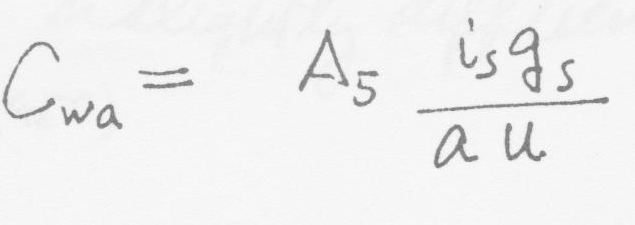 C_wa = A_5 \frac{i_s g_s}{a u}